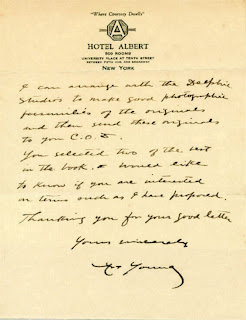 "Where Courtesy Dwells"
A
HOTEL ALBERT
500 ROOMS
UNIVERSITY PLACE AT TENTH STREET
BETWEEN FIFTH AVE. AND BROADWAY
NEW YORK
I can arrange with the Delphic
Studios to make good photographic
facsimilies of the originals
and then send these originals
to you C.O.D.
You selected two of the best
in the book. I would like
to know if you are interested
on terms such as I have proposed.
Thanking you for your good letter
Yours sincerely
Art Young